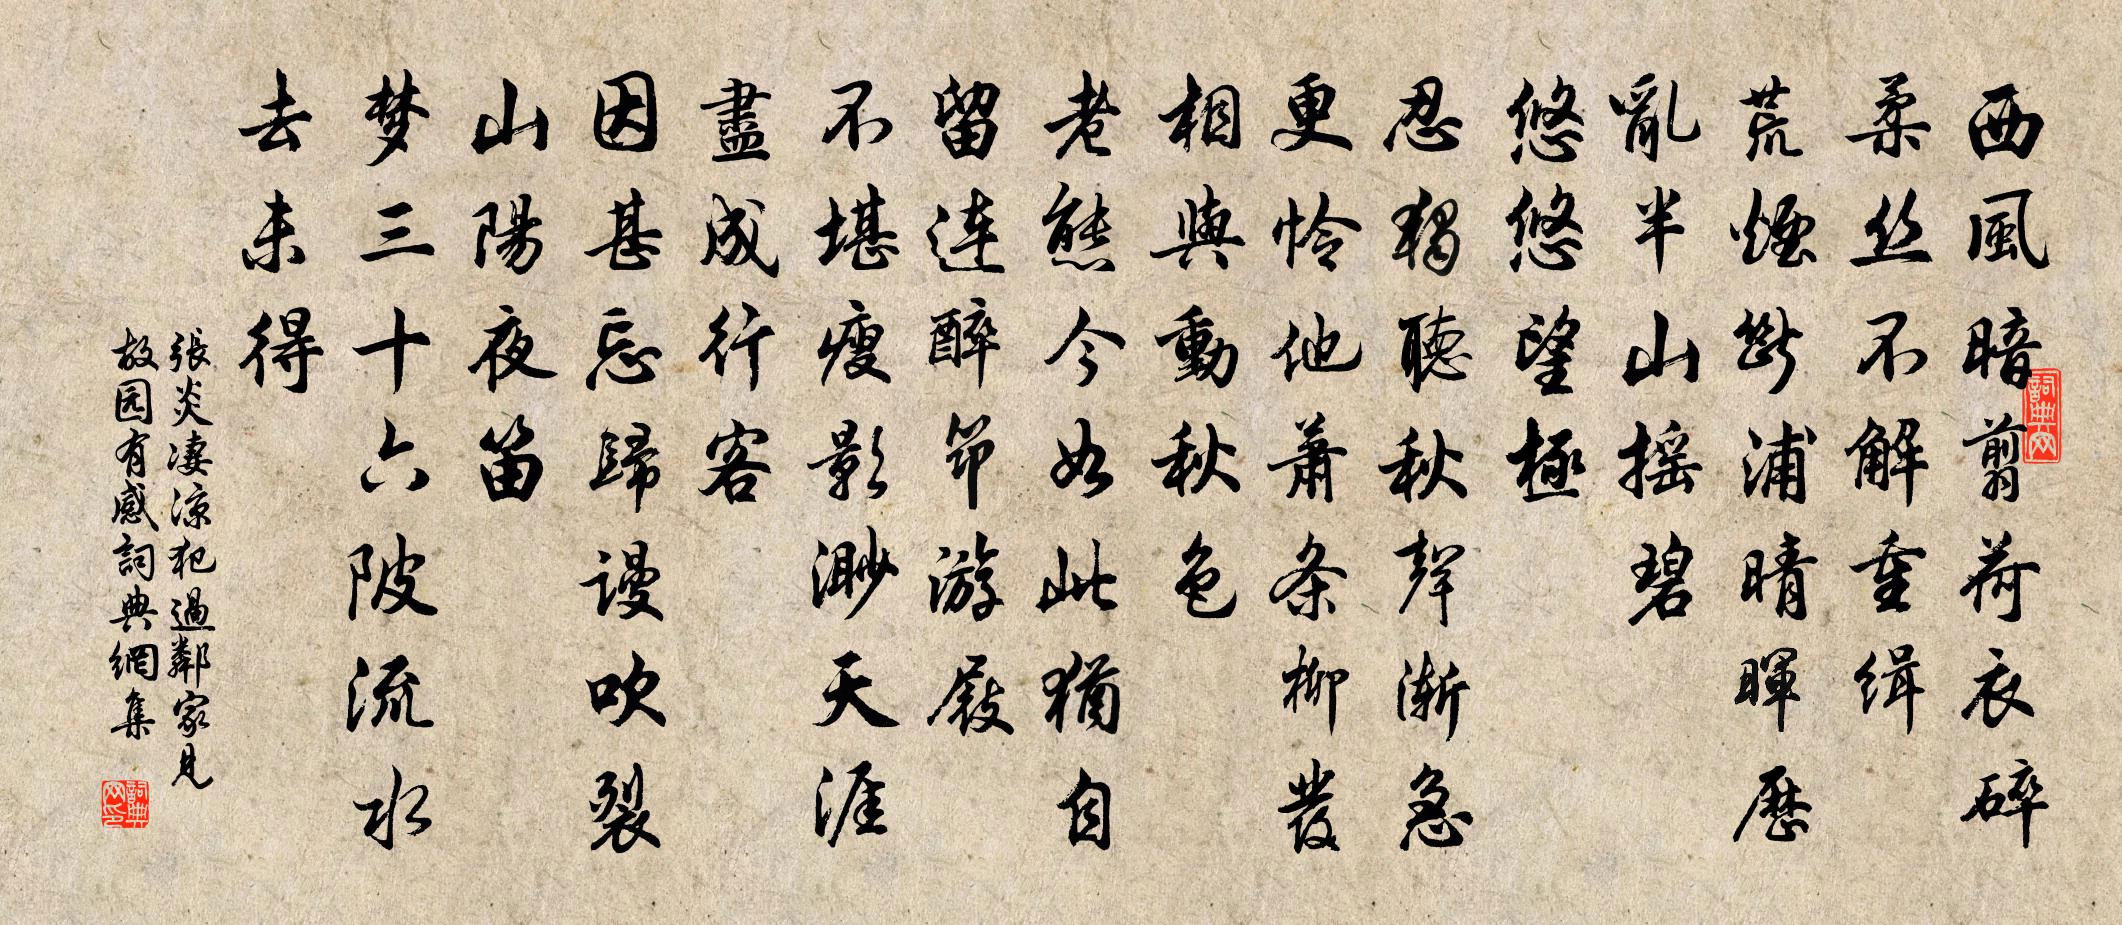 西風暗翦荷衣碎
柔丝不解重缉
荒煙斷浦晴暉歷
亂半山摇碧
悠悠望極
忍獨聽秋聲漸急
更怜他萧条柳發
相與動秋色
老態今如此猶自
留連醉筇游屐
不堪瘦影渺天涯
盡成行客
因甚忘歸谩吹裂
山陽夜笛
梦三十六陂流水
去未得
張炎凄凉犯過鄰家見
故园有感詞典網集
詞典网
詞典网印